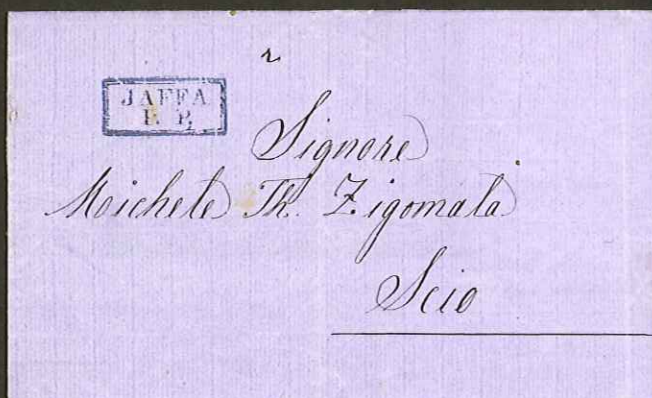 2
JAFFA
P. P.
Signore
Moichele Th. Zigomala
Scio